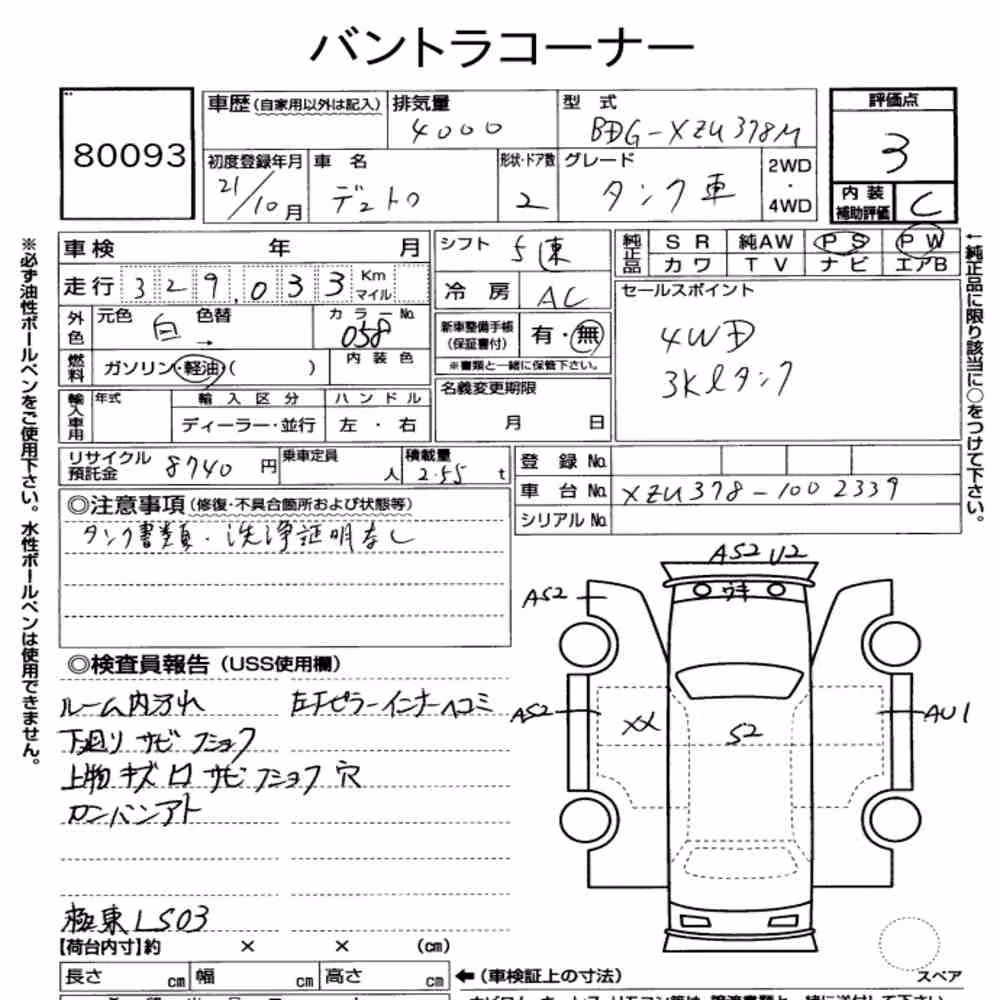 バントラコーナー
80093
車歴 (自家用以外は記入) 排気量 型式 評価点
4000 BDG-XZU378M 3
初度登録年月 車名 形状・ドア数 グレード 2WD・4WD 内装補助評価
21/10月 デュトロ 2 タンク車 C
車検 年 月 シフト 5速 純正品 SR 純AW PS PW
カワ TV ナビ エアB
走行 329,033 Km マイル 冷房 AC
セールスポイント
4WD
3Kℓタンク
外色 元色 白 色替 → カラーNo. 058
新車整備手帳 (保証書付) 有・無
※書類と一緒に保管下さい。
燃料 ガソリン・軽油・( ) 内装色
名義変更期限
月 日
輸入車用 年式 輸入区分 ハンドル
ディーラー・並行 左・右
リサイクル預託金 8740円 乗車定員 人 積載量 2.55 t
登録No.
車台No. XZU378-1002339
シリアルNo.
◎注意事項 (修復・不具合箇所および状態等)
タンク書類・洗浄証明なし
◎検査員報告 (USS使用欄)
ルーム内汚れ 左Fピラーインナーヘコミ
下廻り サビ フショク
上物 キズ 凹 サビ フショク 穴
カンバンアト
極東 LS03
【荷台内寸】約 × × (cm)
長さ cm 幅 cm 高さ cm ←(車検証上の寸法)
AS2 U2
ウキ
AS2
AS2
XX
S2
AU1
スペア
※必ず油性ボールペンをご使用下さい。水性ボールペンは使用できません。
←純正品に限り該当に○をつけて下さい。